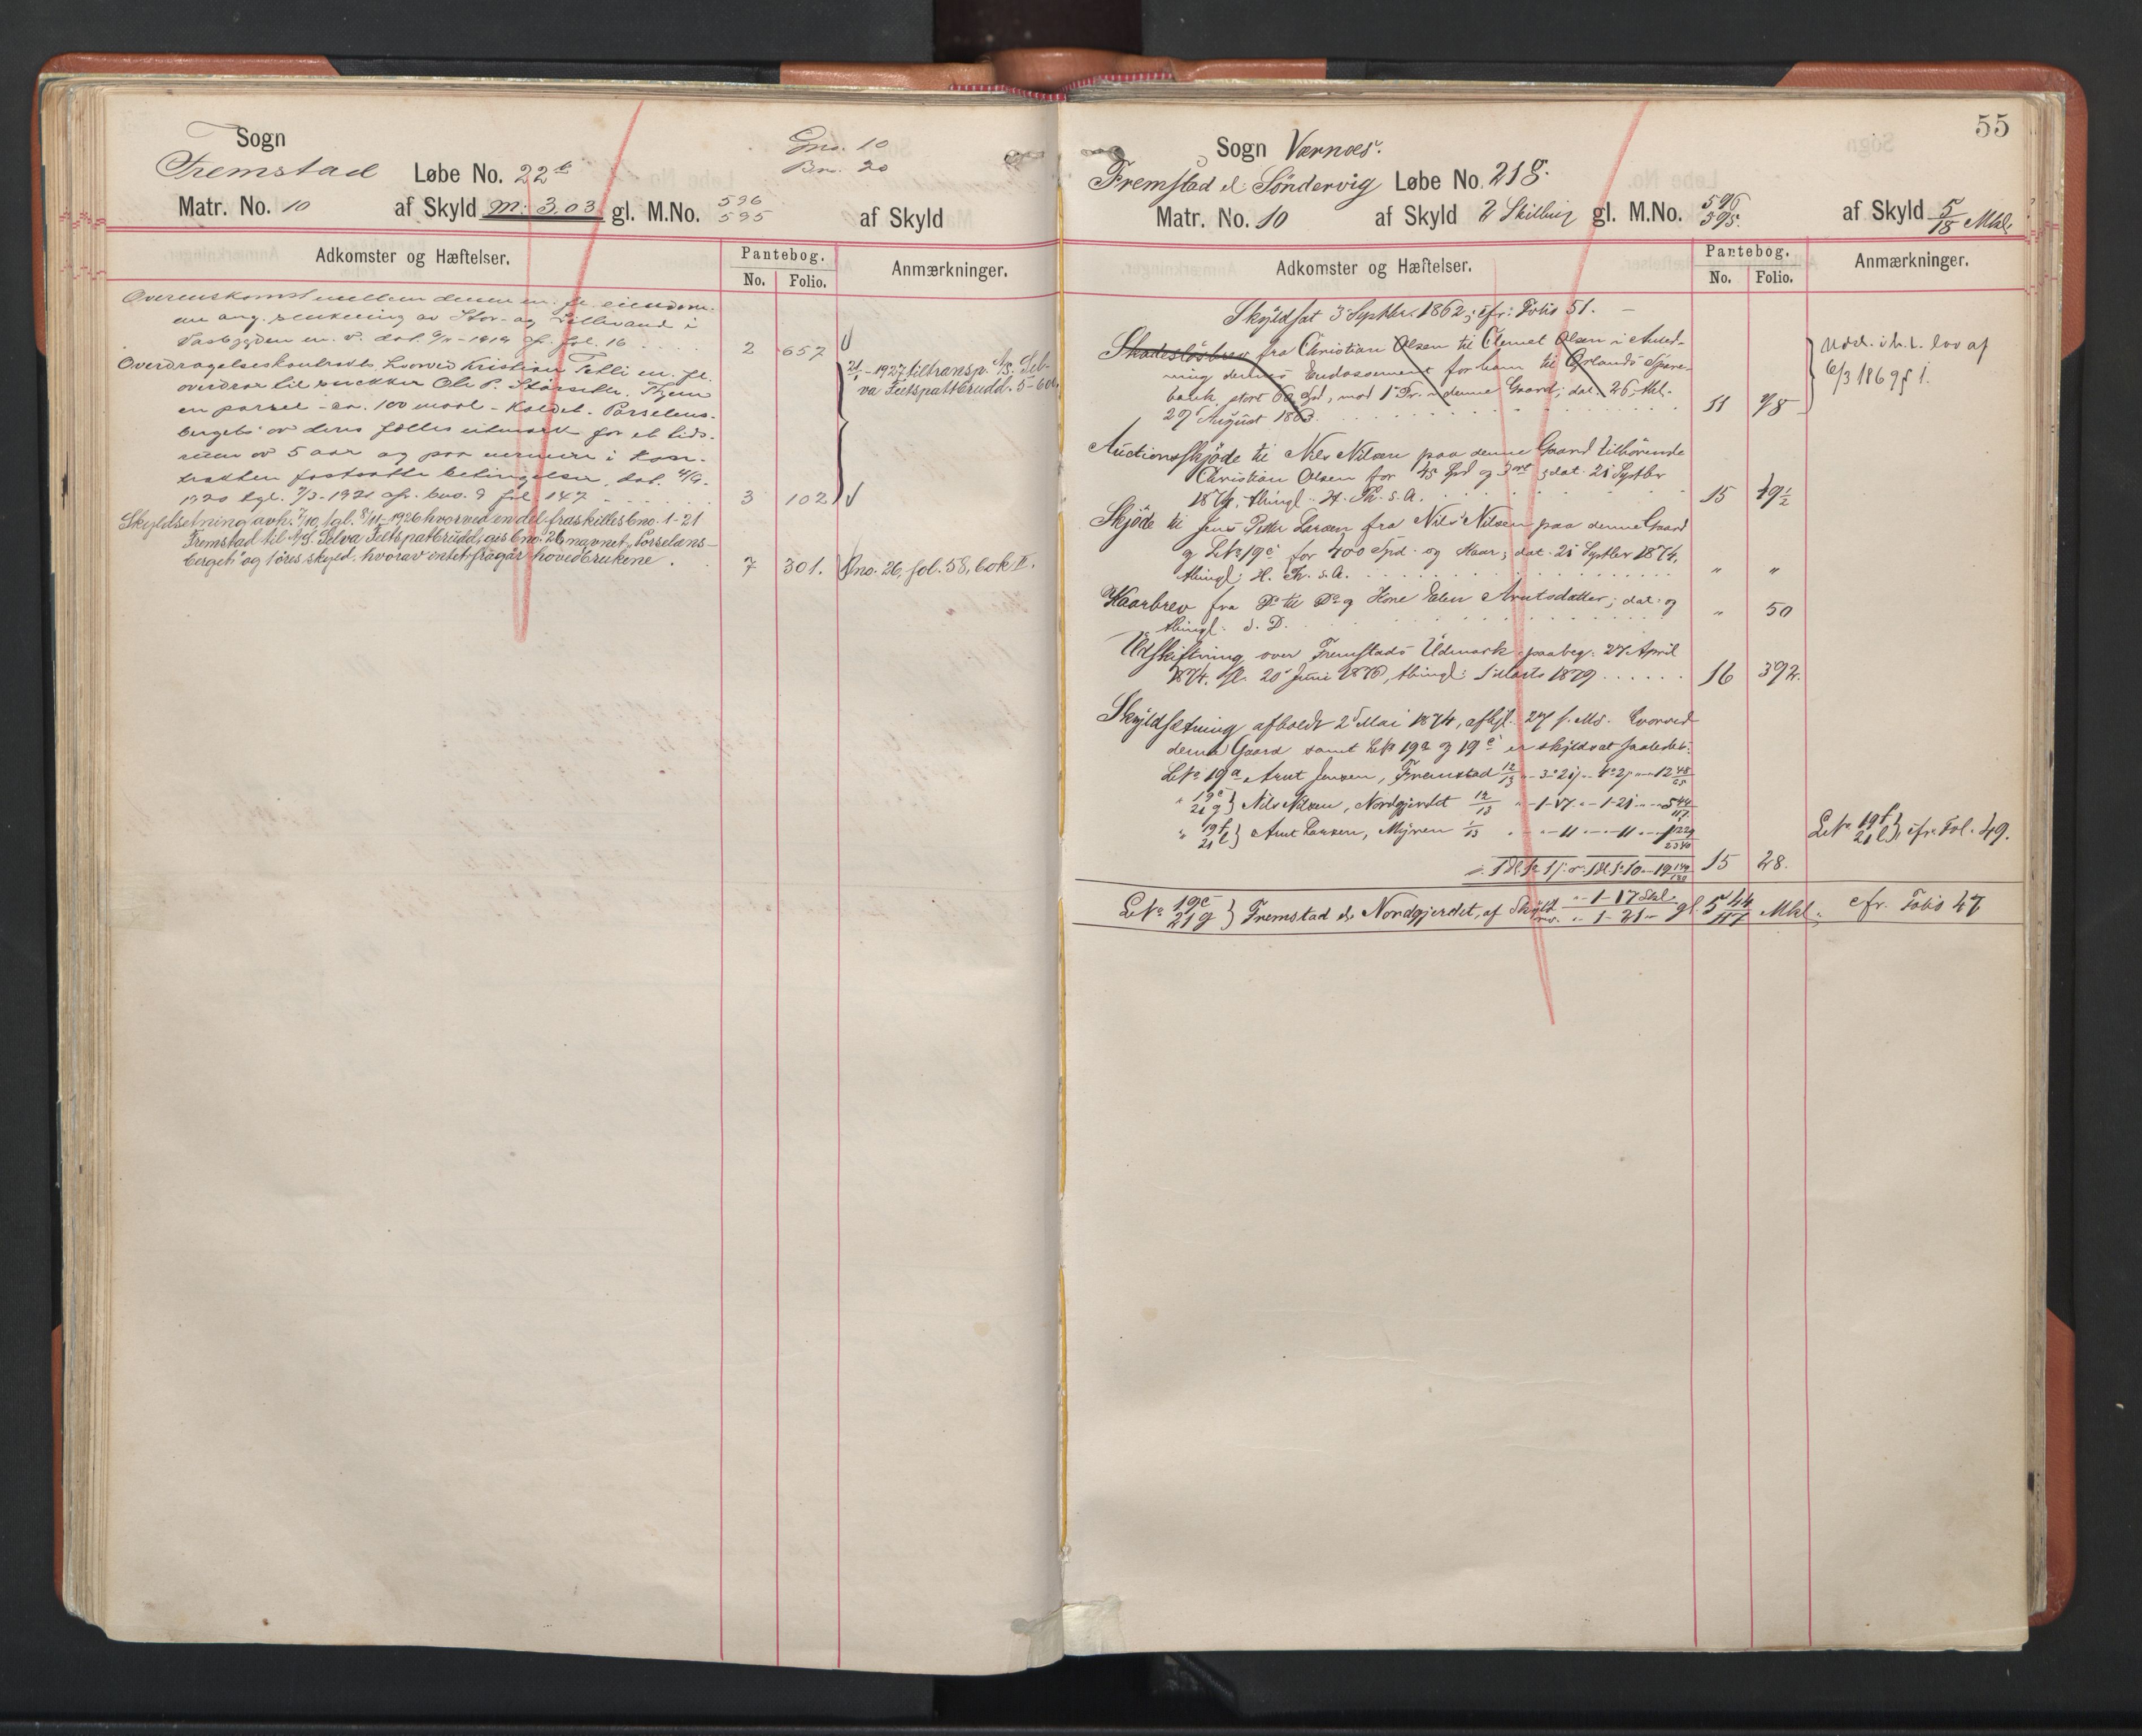 Sogn
Fremstad Løbe No. 22b
Gno. 10
Bn. 20
Matr. No. 10 af Skyld M. 3.03 gl. M.No. 596 595 af Skyld
Adkomster og Hæftelser. Pantebog. No. Folio. Anmærkninger.
Overenskomst mellem denne en. fl. eiendom-
me ang. senkning av Stor- og Lillevand i
2 657
Overdragelseskontrakt, hvorved Kristian Tetli en. fl.
21/1 - 1927 tiltransp. A/S. Sel-
overdrar til snekker Ole P.
va Feltspatbrudd. 5-600
en parsel - ca. 100 maal - kaldet "Porselens-
berget" av deres fælles utmark for et tids-
rum av 5 aar og paa nermere i kon-
trakten fastsatte betingelser, dat. 4/9-
1920 tgl. 7/3-1921 cfr. bno. 9 fol. 147 3 102
Skyldsetning avh. 7/10, tgl. 8/11-1926 hvorved en del fraskilles bno. 1-21
Fremstad til A/S. Selva Feltspatbrudd, gis bno. 26 navnet "Porselæns-
berget" og 1 øres skyld. hvorav intet fragår hovedbrukene. 7 301. Bno. 26, fol. 58, bok II.
55
Sogn Værnæs.
Fremstad el. Søndervig Løbe No. 21 8.
Matr. No. 10 af Skyld 2 Skilling gl. M.No. 596 595. af Skyld 5/18 Mkl.
Adkomster og Hæftelser. Pantebog. No. Folio. Anmærkninger.
Skyldsat 3 Septbr. 1862; cfr. Folio 51. –
Skadesløsbrev fra Christian Olsen til Clemet Olsen i Anled-
Mod. i h. t. lov af
ning dennes Endossement for ham til Ørlands Spare-
6/3 1869 § 1.
bank, stort 60 Spd, mod 1 Pr. i denne Gaard; dat. 26, thl.
27 August 1863. 11 98
Auctionsskjøde til Nils Nilsen paa denne Gaard tilhørende
Christian Olsen for 45 Spd og 3 ort; dat. 21 Septbr
1874, thingl. H. Th. s. A. 15 49½
Skjøde til Jens Petter Larsen fra Nils Nilsen paa denne Gaard
og LNo 19c for 400 Spd. og Kaar; dat. 21 Septbr 1874,
thingl. H. Th. s. A. " "
Kaarbrev fra Do til Do og Kone Elen Arntsdatter; dat. og
thingl. s. D. " 50
Udskiftning over Fremstads Udmark paabeg. 27 April
1874. sl. 20 Juni 1876, thingl. 1 Marts 1879 16 392.
Skyldsætning afholdt 2 Mai 1874, afhjl. 27 s. Md. hvorved
denne Gaard samt LNo 19a og 19c er skyldsat saaledes:
LNo 19a Arnt Jensen, Fremstad 12/13
" 19c 21g } Nils Nilsen, Nordgjerdet 12/13 " - 1 - 17. " - 1 - 21 - " - 5 44/117
" 19f 21l } Arnt Larsen, Myren 1/13 " - " - 11 - " - 11
LNo 19f 21l }, cfr. Fol. 49.
15 28.
LNo. 19c 21g } Fremstad el. Nordgjerdet, af Skyld " - 1 - 17 Skl. " 1 - 21 - gl. 5 44/117 Mkl., cfr. Folio 47